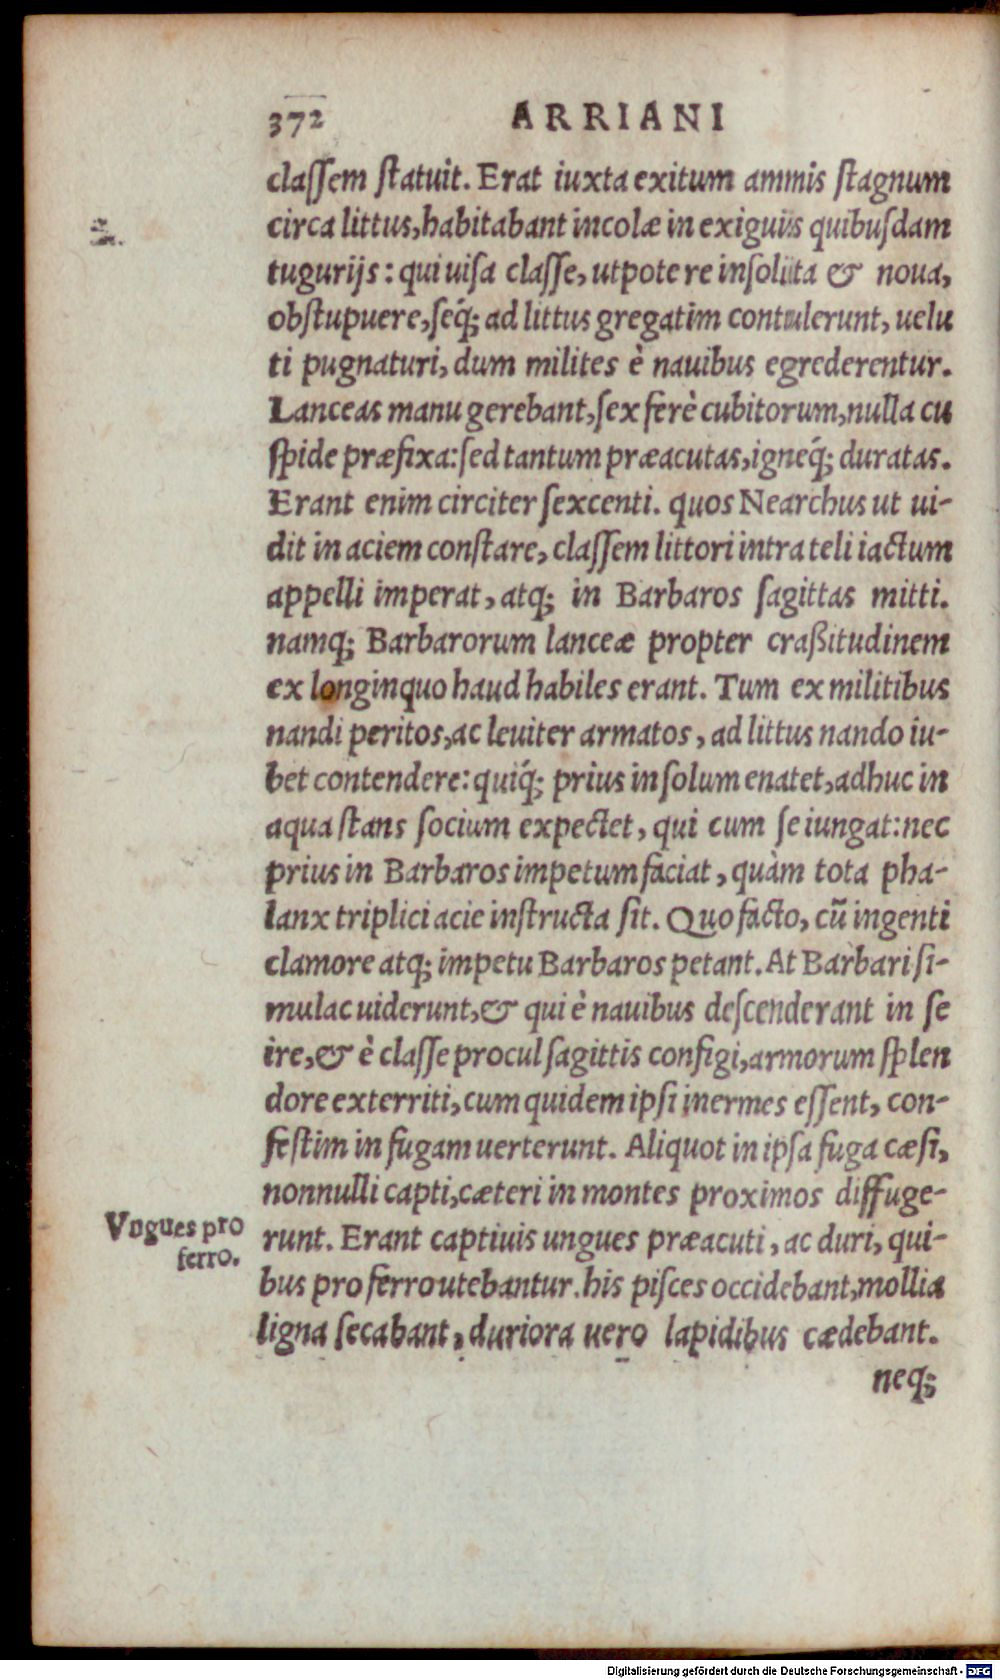 372 ARRIANI
claſſem ſtatuit. Erat iuxta exitum amnis ſtagnum
circa littus, habitabant incolæ in exiguis quibuſdam
tugurijs: qui uiſa claſſe, utpote re inſolita & noua,
obſtupuere, ſeq́; ad littus gregatim contulerunt, uelu
ti pugnaturi, dum milites è nauibus egrederentur.
Lanceas manu gerebant, ſex ferè cubitorum, nulla cu
ſpide præfixa: ſed tantum præacutas, igneq́; duratas.
Erant enim circiter ſexcenti. quos Nearchus ut ui-
dit in aciem conſtare, claſſem littori intra teli iactum
appelli imperat, atq; in Barbaros ſagittas mitti.
namq; Barbarorum lanceæ propter craßitudinem
ex longinquo haud habiles erant. Tum ex militibus
nandi peritos, ac leuiter armatos, ad littus nando iu-
bet contendere: quiq́; prius in ſolum enatet, adhuc in
aqua ſtans ſocium expectet, qui cum ſe iungat: nec
prius in Barbaros impetum faciat, quàm tota pha-
lanx triplici acie inſtructa ſit. Quo facto, cũ ingenti
clamore atq; impetu Barbaros petant. At Barbari ſi-
mulac uiderunt, & qui è nauibus deſcenderant in ſe
ire, & è claſſe procul ſagittis configi, armorum ſplen
dore exterriti, cum quidem ipſi inermes eſſent, con-
feſtim in fugam uerterunt. Aliquot in ipſa fuga cæſi,
nonnulli capti, cæteri in montes proximos diffuge-
Vngues pro
ferro.
runt. Erant captiuis ungues præacuti, ac duri, qui-
bus pro ferro utebantur. his piſces occidebant, mollia
ligna ſecabant, duriora uero lapidibus cædebant.
neq;
Digitalisierung gefördert durch die Deutsche Forschungsgemeinschaft - DFG